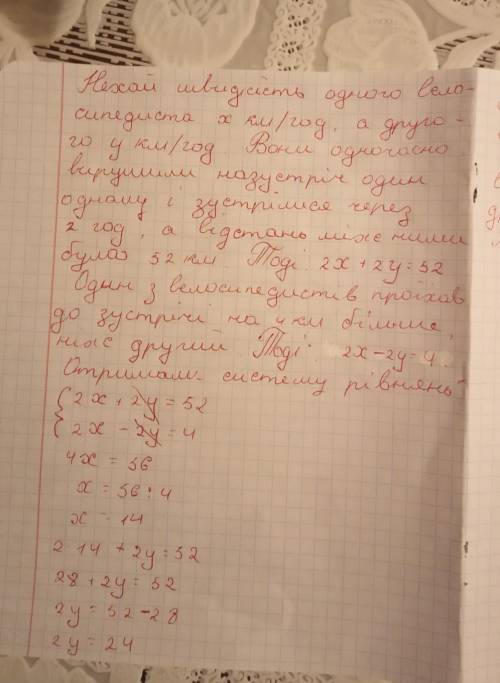 Нехай швидкість одного вело-
сипедиста x км/год, а друго-
го y км/год. Вони одночасно
вирушили назустріч один
одному і зустрілися через
2 год, а відстань між ними
була 52 км. Тоді: 2x + 2y = 52
Один з велосипедистів проїхав
до зустрічі на 4 км більше,
ніж другий. Тоді: 2x - 2y = 4.
Отримали систему рівнянь
{2x + 2y = 52
{2x - 2y = 4
4x = 56
x = 56 : 4
x = 14
2 14 + 2y = 52
28 + 2y = 52
2y = 52 - 28
2y = 24